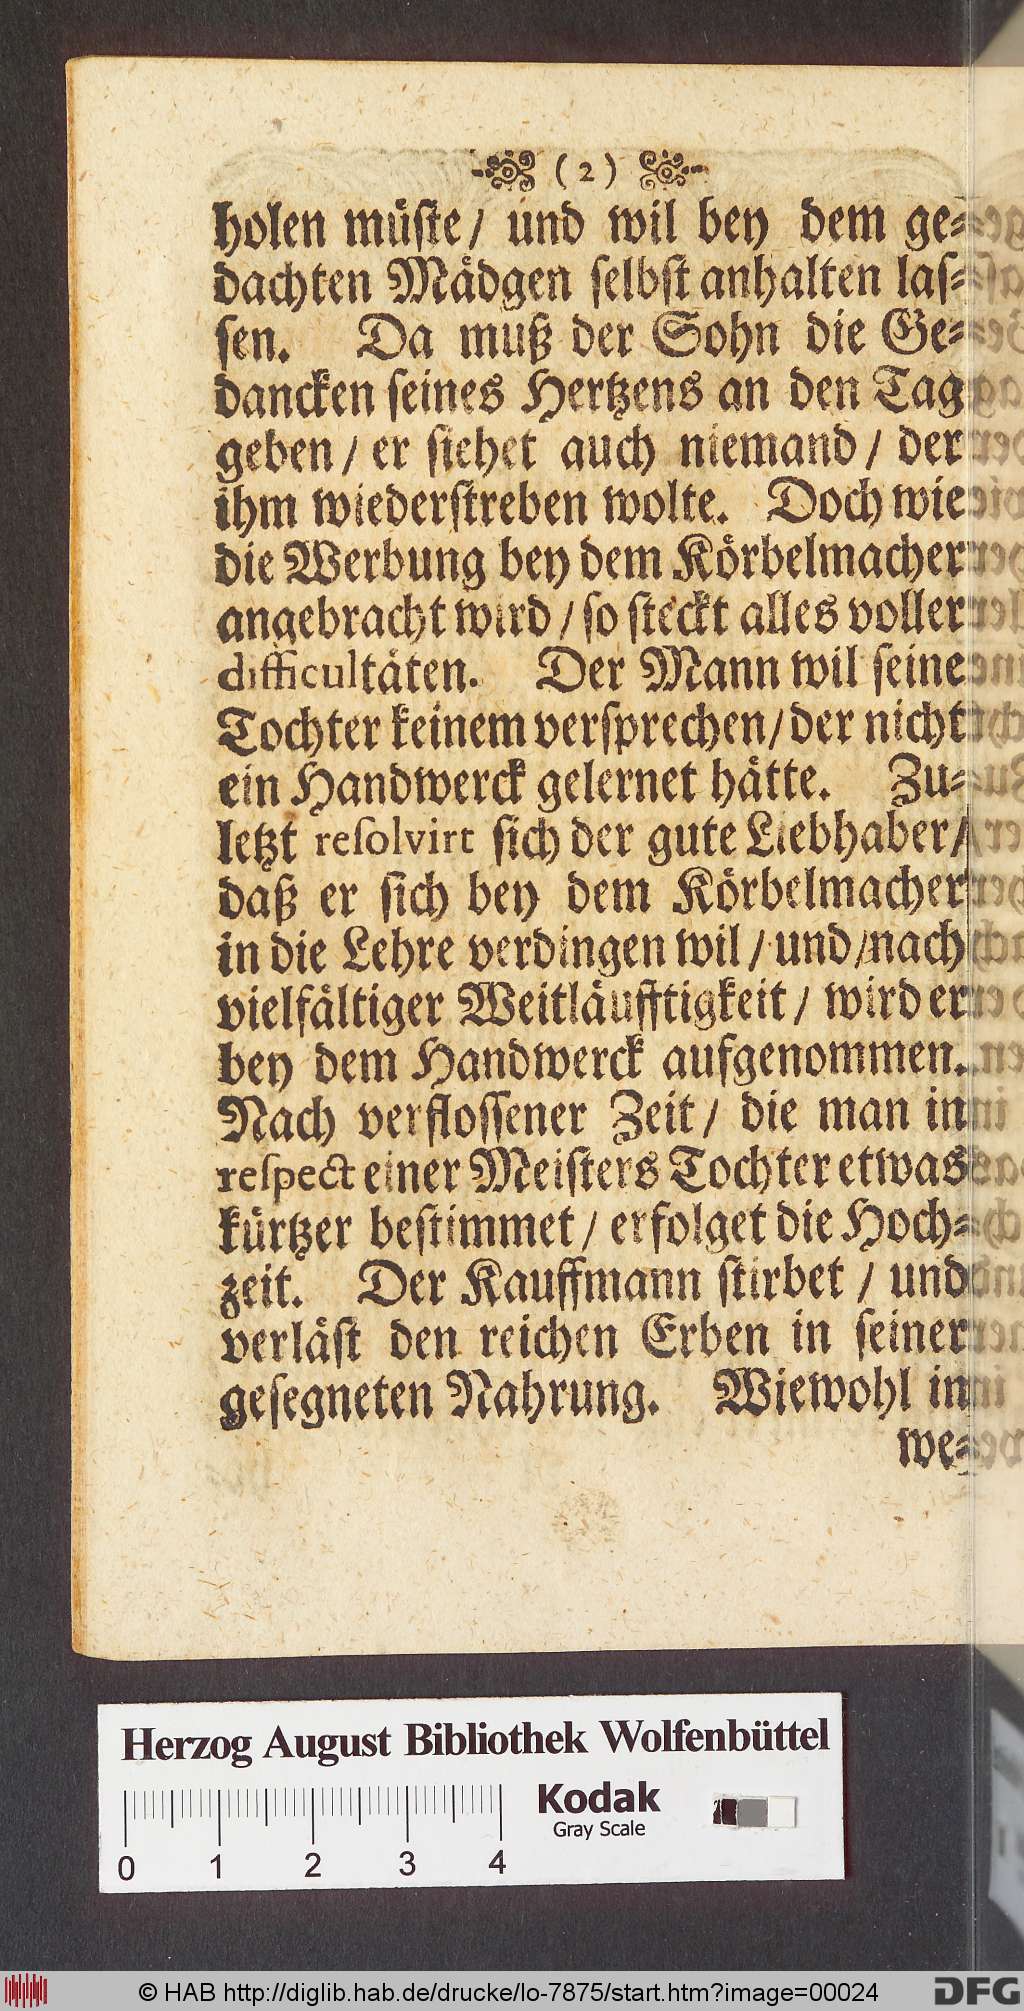 ( 2 )
holen müſte/ und wil bey dem ge⸗
dachten Mädgen ſelbſt anhalten laſ⸗
ſen. Da muß der Sohn die Ge⸗
dancken ſeines Hertzens an den Tag
geben/ er ſiehet auch niemand/ der
ihm wiederſtreben wolte. Doch wie
die Werbung bey dem Körbelmacher
angebracht wird/ ſo ſteckt alles voller
difficultäten. Der Mann wil ſeine
Tochter keinem verſprechen/ der nicht
ein Handwerck gelernet hätte. Zu⸗
letzt reſolvirt ſich der gute Liebhaber/
daß er ſich bey dem Körbelmacher
in die Lehre verdingen wil/ und/ nach
vielfältiger Weitläufftigkeit/ wird er
bey dem Handwerck aufgenommen.
Nach verfloſſener Zeit/ die man in
reſpect einer Meiſters Tochter etwas
kürtzer beſtimmet/ erfolget die Hoch⸗
zeit. Der Kauffmann ſtirbet/ und
verläſt den reichen Erben in ſeiner
geſegneten Nahrung. Wiewohl in
we⸗
Herzog August Bibliothek Wolfenbüttel
Kodak
Gray Scale
0 1 2 3 4
© HAB http://diglib.hab.de/drucke/lo-7875/start.htm?image=00024
DFG